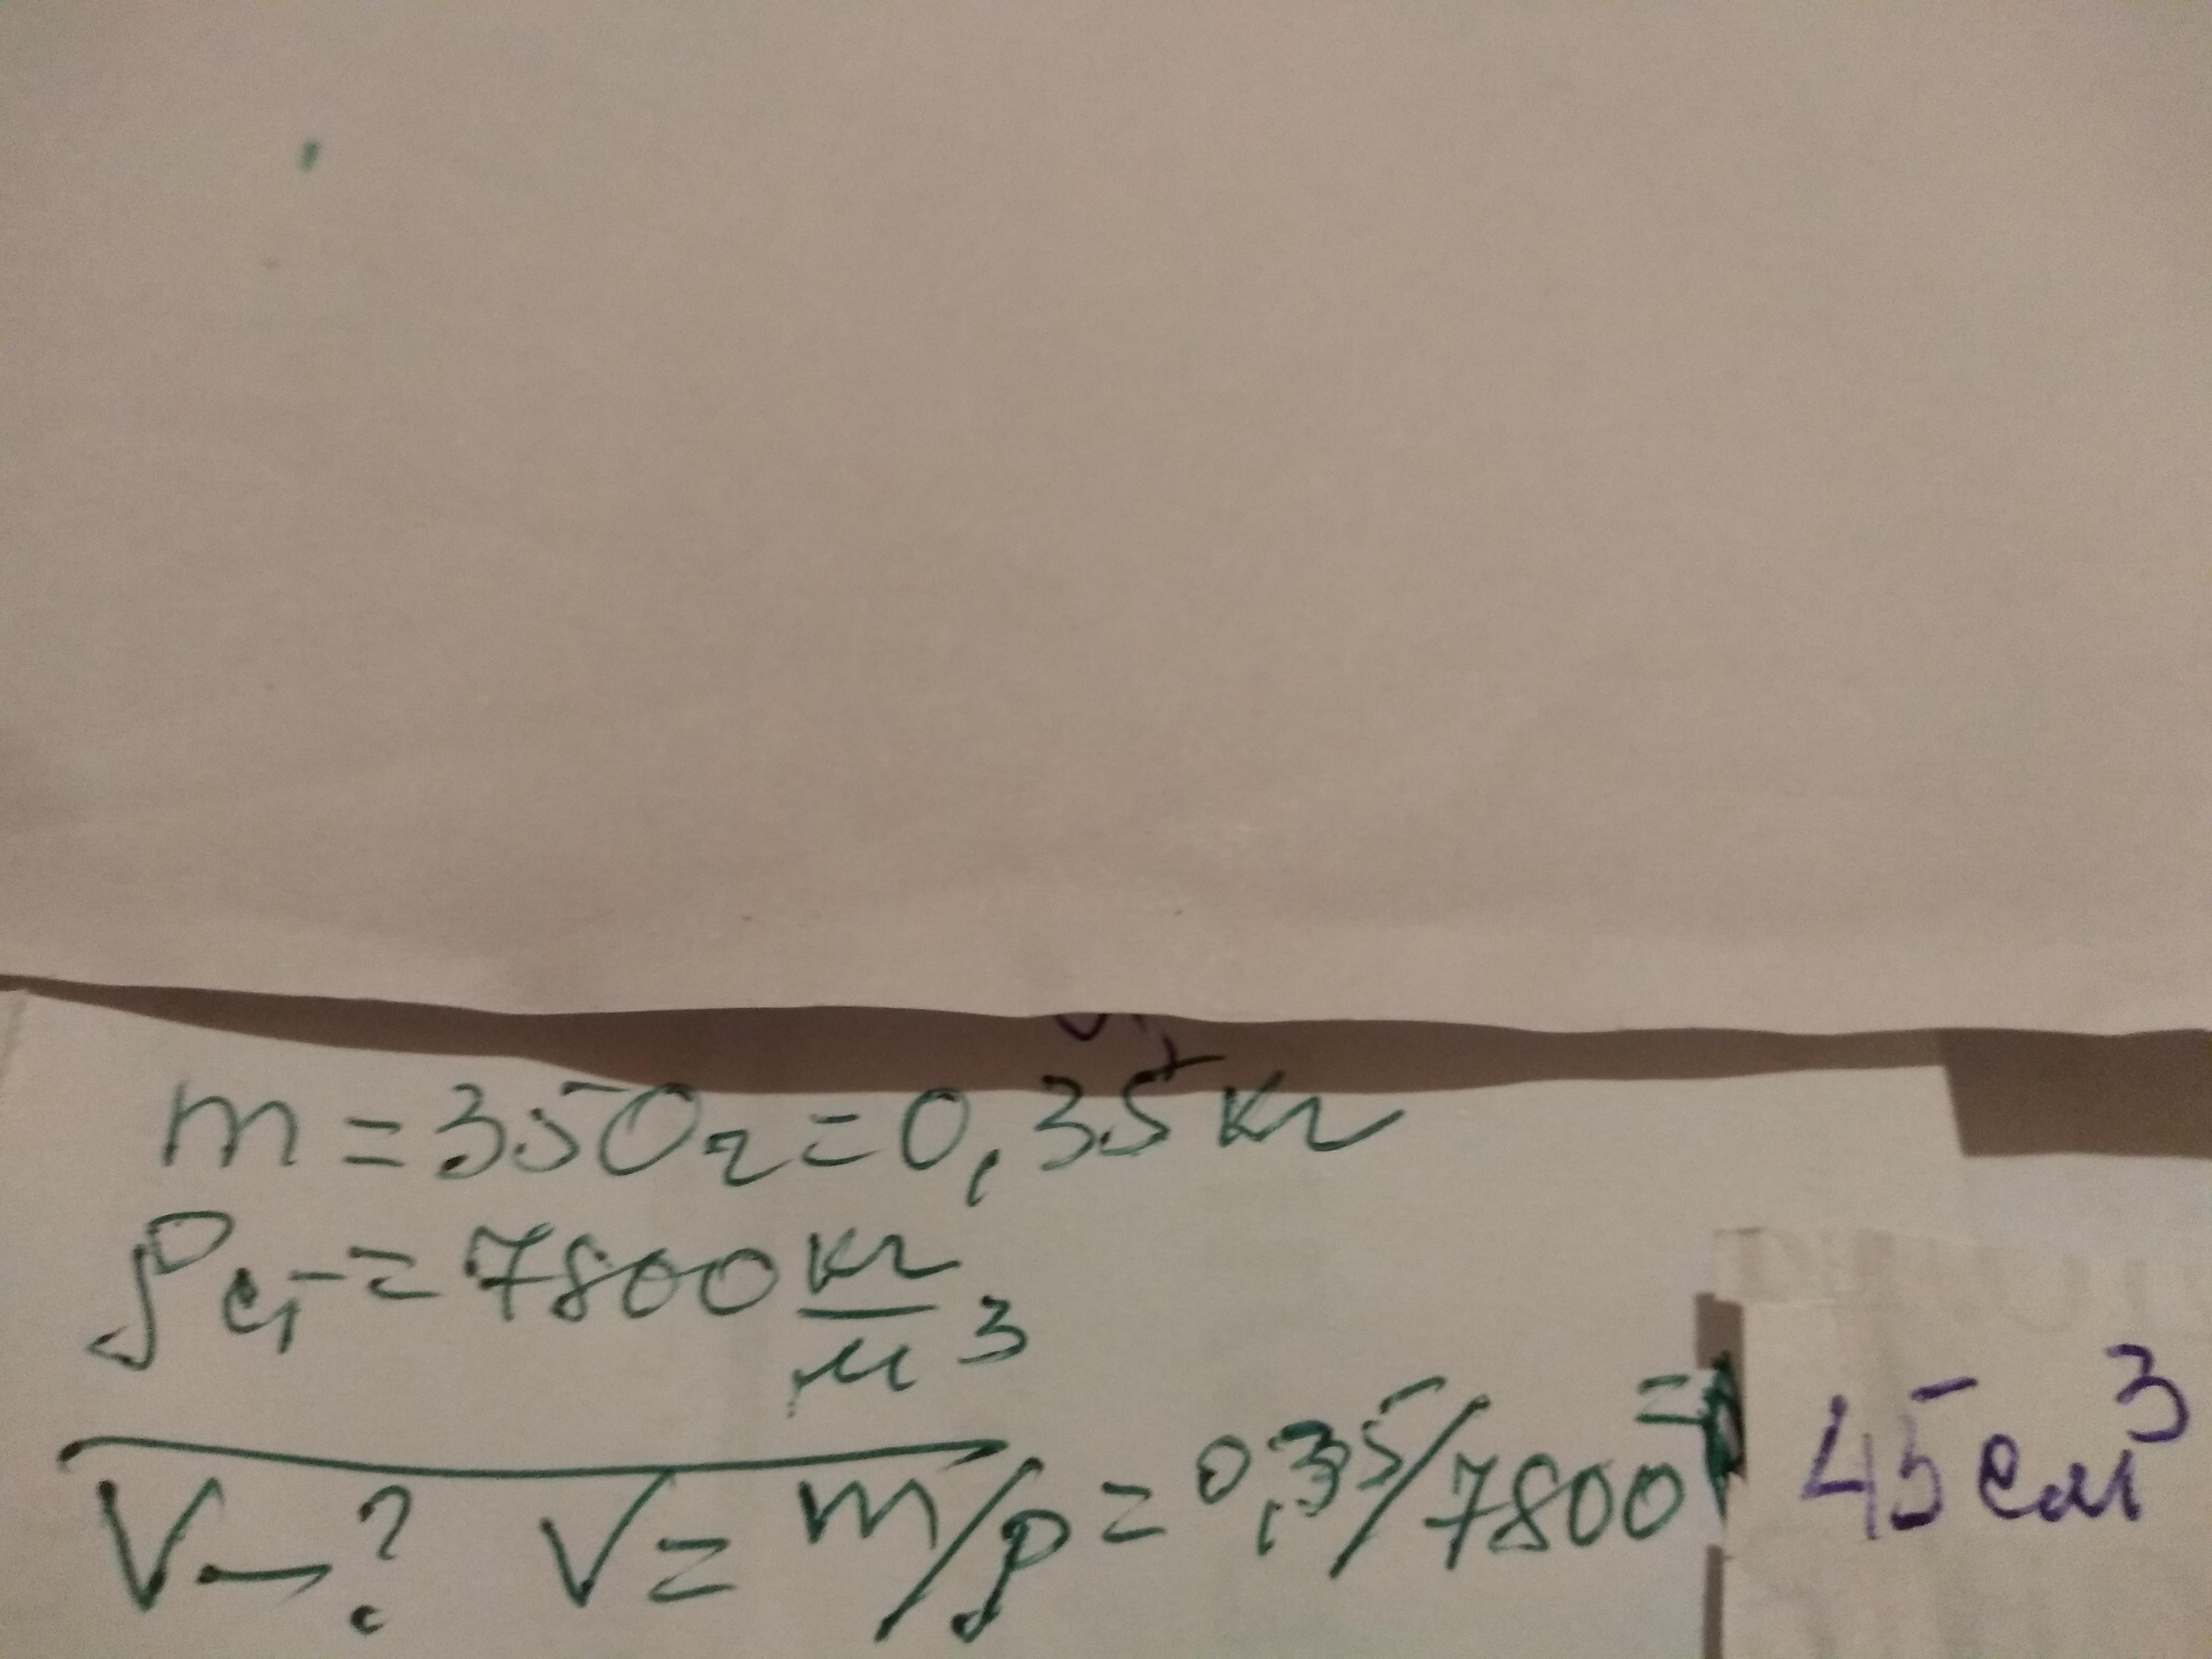 m = 350г = 0,35 кг
ρст = 7800 кг/м³
V — ? V = m/ρ = 0,35/7800 = 45 см³